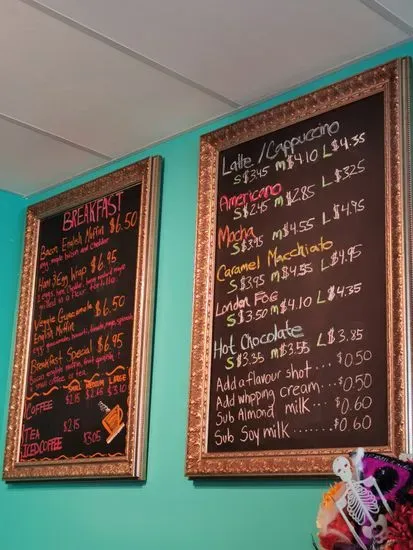 BREAKFAST
Bacon English Muffin $6.50
egg, maple bacon and cheddar
Ham & Egg Wrap $6.95
2 eggs, ham, cheddar,
in a flour tortilla
Veggie Guacamole $6.50
English Muffin
egg, guacamole,
Breakfast Special $6.95
Bacon english muffin,
small coffee or tea
SMALL MEDIUM LARGE
COFFEE $2.15 $2.45 $3.10
TEA $2.15
ICED COFFEE $3.05
Latte/Cappuccino
S $3.45 M $4.10 L $4.35
Americano
S $2.45 M $2.85 L $3.25
Mocha
S $3.95 M $4.55 L $4.95
Caramel Macchiato
S $3.95 M $4.55 L $4.95
London Fog
S $3.50 M $4.10 L $4.35
Hot Chocolate
S $3.35 M $3.55 L $3.85
Add a flavour shot... $0.50
Add whpping cream.... $0.50
Sub Almond milk ... $0.60
Sub Soy milk ....... $0.60